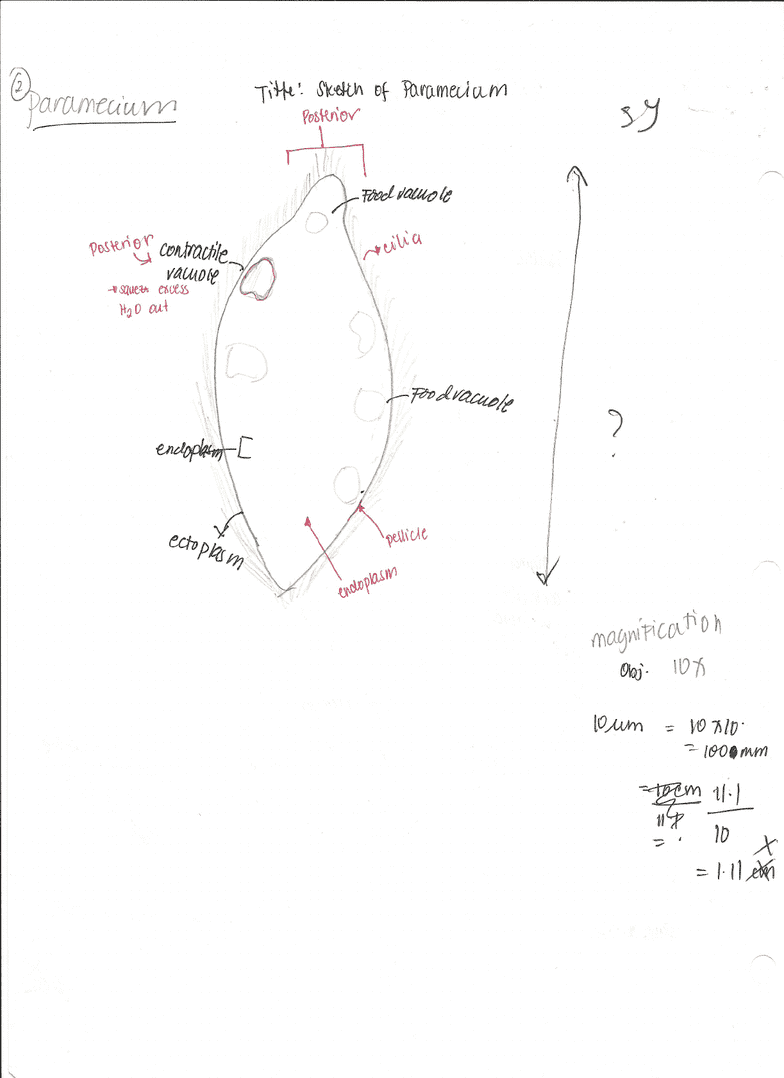 2
Paramecium
Title: Sketch of Paramecium
Posterior
Food vacuole
Posterior
contractile
vacuole
cilia
→ squeeze excess
H₂O out
Food vacuole
endoplasm
ectoplasm
pellicle
endoplasm
?
magnification
Obj. 10x
10 um = 10 x 10.
= 1000 mm
= 10cm 11.1
10
= .
= 1.11 x